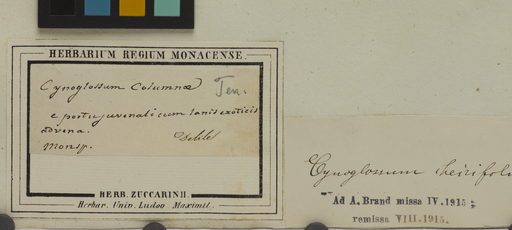 HERBARIUM REGIUM MONACENSE.
Cynoglossum Columnæ Ten.
e portu juvenali cum lanis exoticis
advena.
Delile
Monsp.
HERB. ZUCCARINII
Herbar. Univ. Ludov. Maximil.
Cynoglossum
Ad A. Brand missa IV. 1915;
remissa VIII. 1915.